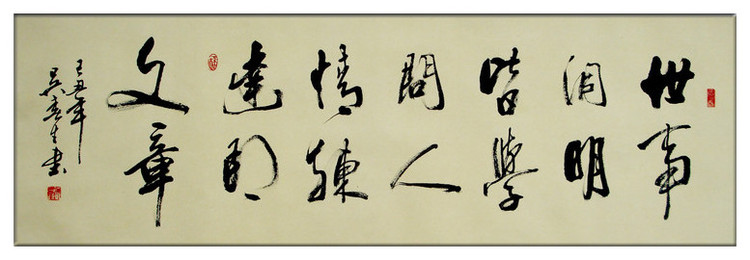 世事
洞明
皆學
問人
情練
達即
文章
己丑年
生書